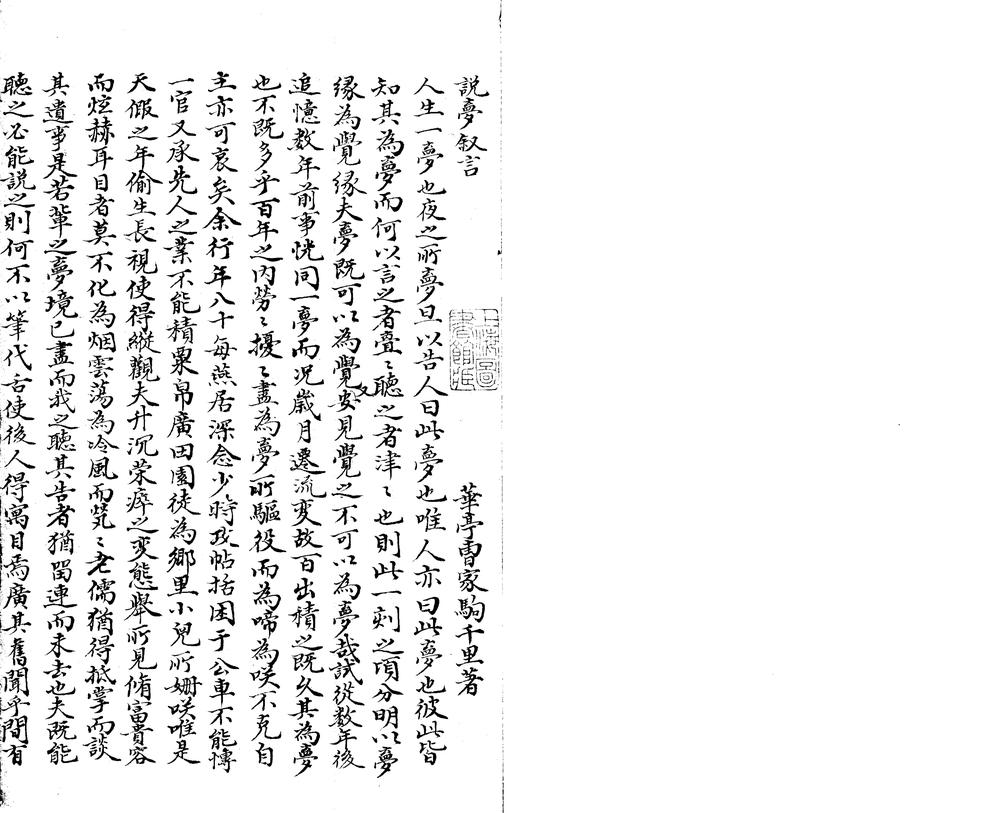 說夢叙言
華亭曹家駒千里著
人生一夢也夜之所夢旦以告人曰此夢也唯人亦曰此夢也彼此皆
知其為夢而何以言之者亹〻聽之者津〻也則此一刻之頃分明以夢
緣為覺緣夫夢既可以為覺又安見覺之不可以為夢哉試從数年後
追憶数年前事恍同一夢而况歲月遷流变故百出積之既久其為夢
也不既多乎百年之内勞〻擾〻盡為夢所驅役而為啼為咲不克自
主亦可哀矣余行年八十每燕居深念少時攻帖括困于公車不能慱
一官又承先人之業不能積粟帛廣田園徒為鄉里小兒所姍咲唯是
天假之年偷生長視使得縱觀夫升沉荣瘁之变態舉所見脩富貴容
而炫赫耳目者莫不化為烟雲蕩為冷風而煢〻老儒猶得抵掌而談
其遺事是若輩之夢境已盡而我之聽其告者猶畱連而未去也夫既能
聽之必能説之則何不以筆代舌使後人得寓目焉廣其舊聞乎間有
上海圖書館藏